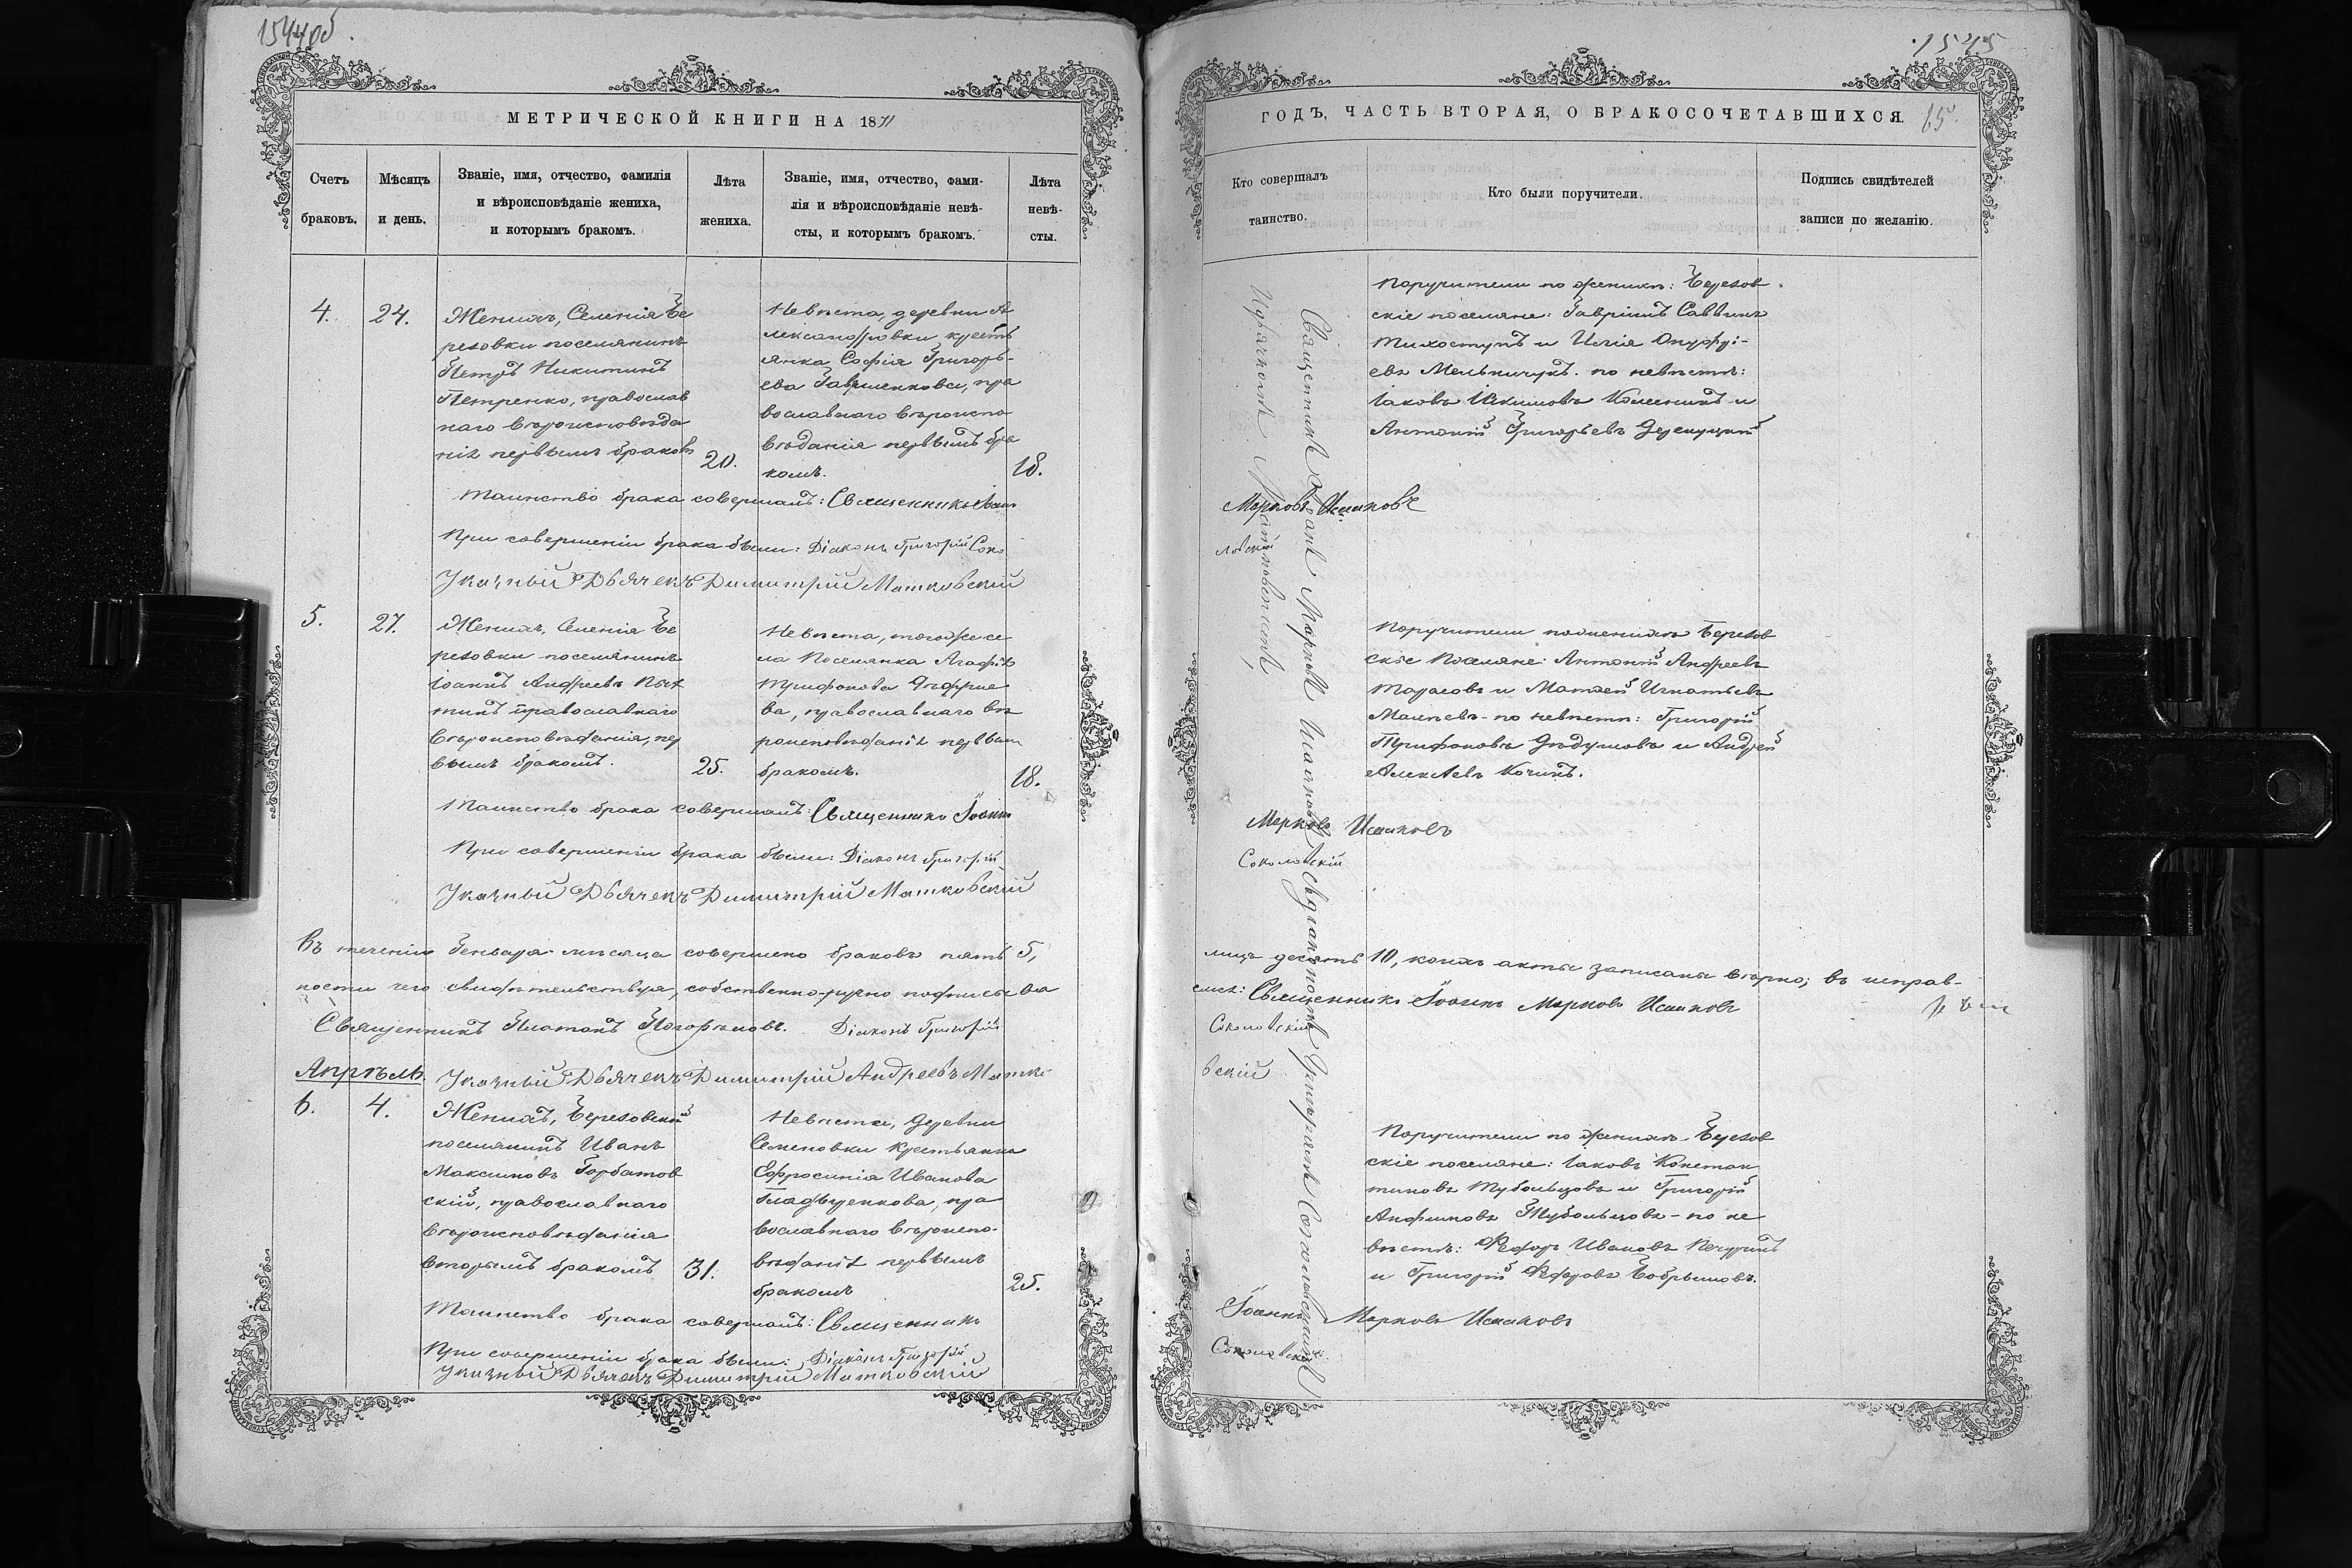 1544об.
МЕТРИЧЕСКОЙ КНИГИ НА 1871
Счетъ браковъ.
Мѣсяцъ и день.
Званіе, имя, отчество, фамилія
и вѣроисповѣданіе жениха,
и которымъ бракомъ.
Лѣта жениха.
Званіе, имя, отчество, фами-
лія и вѣроисповѣданіе невѣ-
сты, и которымъ бракомъ.
Лѣта невѣ-
сты.
4.
24.
Женихъ, Селенія Бе
резовки поселянинъ
Петръ Никитинъ
Петренко, православ
наго вѣроисповѣда
нія первымъ бракомъ
20.
Невѣста, деревни А
лександровки кресть
янка Софія Григорь-
ева Гавриленкова, пра
вославнаго вѣроиспо
вѣданія первымъ бра
комъ.
18.
Таинство брака совершалъ: Священникъ Іоаннъ
При совершеніи брака были: Діаконъ Григорій Соко
Указный Дьячекъ Димитрій Матковскій
5.
27.
Женихъ, Селенія Бе
резовки поселянинъ
Іоаннъ Андреевъ
православнаго
вѣроисповѣданія, пер
вымъ бракомъ.
25.
Невѣста, тогоже се
ла поселянка Агафія
Трифонова
ва, православнаго вѣ
роисповѣданія первымъ
бракомъ.
18.
Таинство брака совершалъ: Священникъ Іоаннъ
При совершеніи брака были: Діаконъ Григорій
Указный Дьячекъ Димитрій Матковскій
Въ теченіи Генваря мѣсяца совершено браковъ пять 5,
ности чего свидѣтельствуя, собственно-ручно подписыва
Священникъ Платонъ Діаконъ Григорій
Апрѣль. Указный Дьячекъ Димитрій Андреевъ Матко
6.
4.
Женихъ, Березовскій
поселянинъ Иванъ
Максимовъ Горбатов
скій, православнаго
вѣроисповѣданія
вторымъ бракомъ
31.
Невѣста, Деревни
Семеновки крестьянка
Ефросинія Иванова
пра
вославнаго вѣроиспо-
вѣданія первымъ
бракомъ
25.
Таинство брака совершалъ: Священникъ
При совершеніи брака были: Діаконъ Григорій
Указный Дьячекъ Димитрій Матковскій
1545
65
ГОДЪ, ЧАСТЬ ВТОРАЯ, О БРАКОСОЧЕТАВШИХСЯ.
Кто совершалъ
таинство.
Кто были поручители.
Подпись свидѣтелей
записи по желанію.
Поручители по женихѣ: Березов
скіе поселяне: Гавріилъ Саввинъ
Тихоступъ и Илія Онуфрі-
евъ Мельничукъ. по невѣстѣ:
Іаковъ Колесникъ и
Антоній Григорьевъ
Марковъ Исаковъ
ловскій
Поручители по женихѣ Березов
скіе Поселяне: Антоній Андреевъ
Тарасовъ и Матвей Игнатьевъ
по невѣсти: Григорій
Трифоновъ и Андрей
Марковъ Исаковъ
Соколовскій
лицъ десять 10, коихъ акты записаны вѣрно; въ исправ-
емся: Священникъ Іоаннъ Марковъ Исаковъ
Соколовскій
вскій
Поручители по женихѣ Березов
скіе поселяне: Іаковъ Констан
тиновъ Тубольцовъ и Григорій
Анфимовъ Тубольцовъ - по не
вѣстѣ: Федоръ Ивановъ
и Григорій Федоровъ Бобрышовъ.
Іоаннъ Марковъ Исаковъ
Соколовскій
Священникъ Іоаннъ Марковъ Исаковъ съ діакономъ Григоріемъ Соколовскимъ